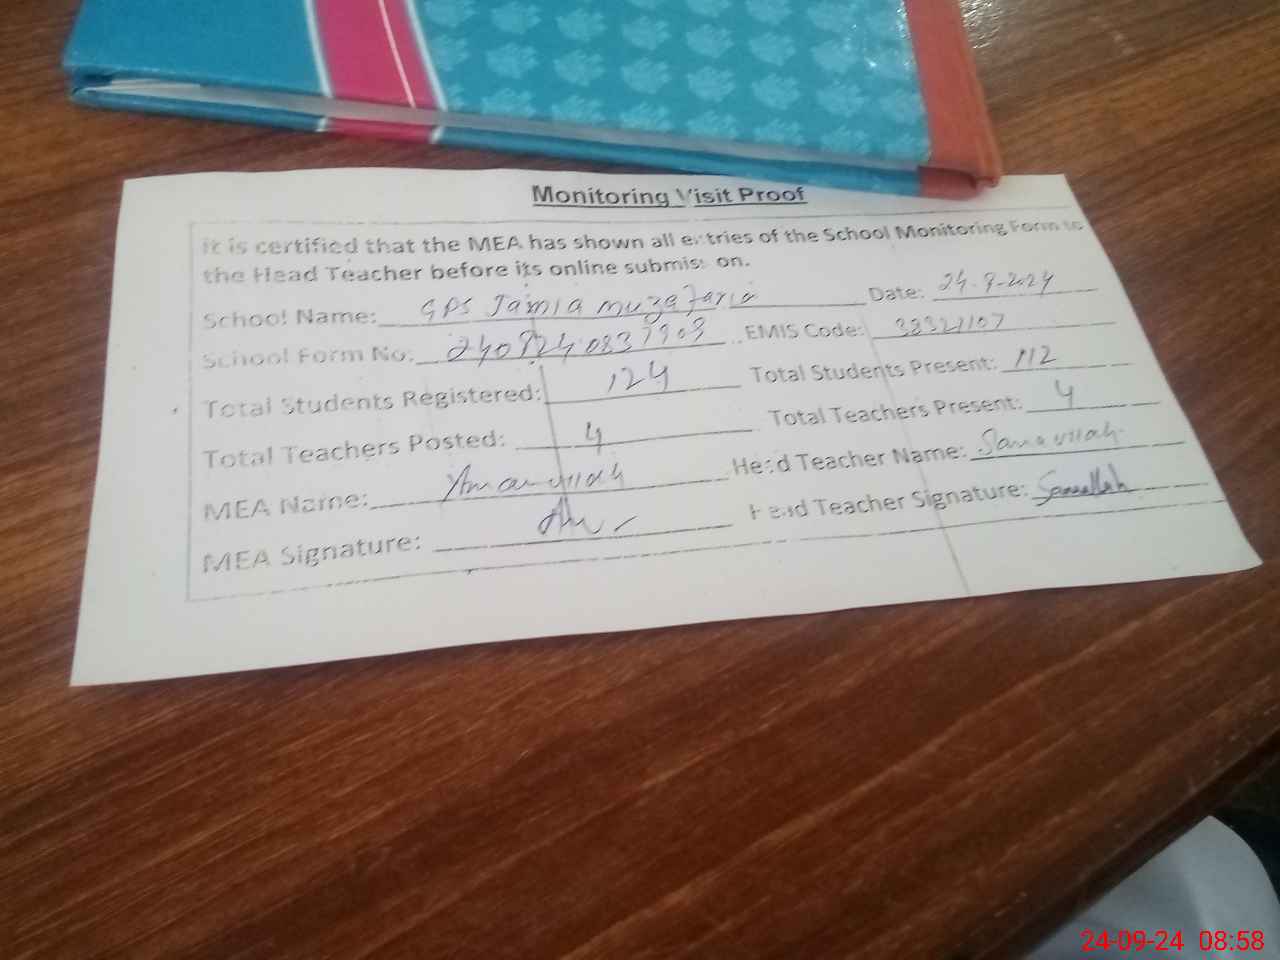 Monitoring Visit Proof
It is certified that the MEA has shown all entries of the School Monitoring Form to
the Head Teacher before its online submission.
School Name: GPS Jamia muzafaria Date: 24-9-2024
School Form No: EMIS Code: 38321107
Total Students Registered: 124 Total Students Present: 112
Total Teachers Posted: 4 Total Teachers Present: 4
MEA Name: Amanullah Head Teacher Name: Samaullah
MEA Signature: Head Teacher Signature: Samaullah
24-09-24 08:58